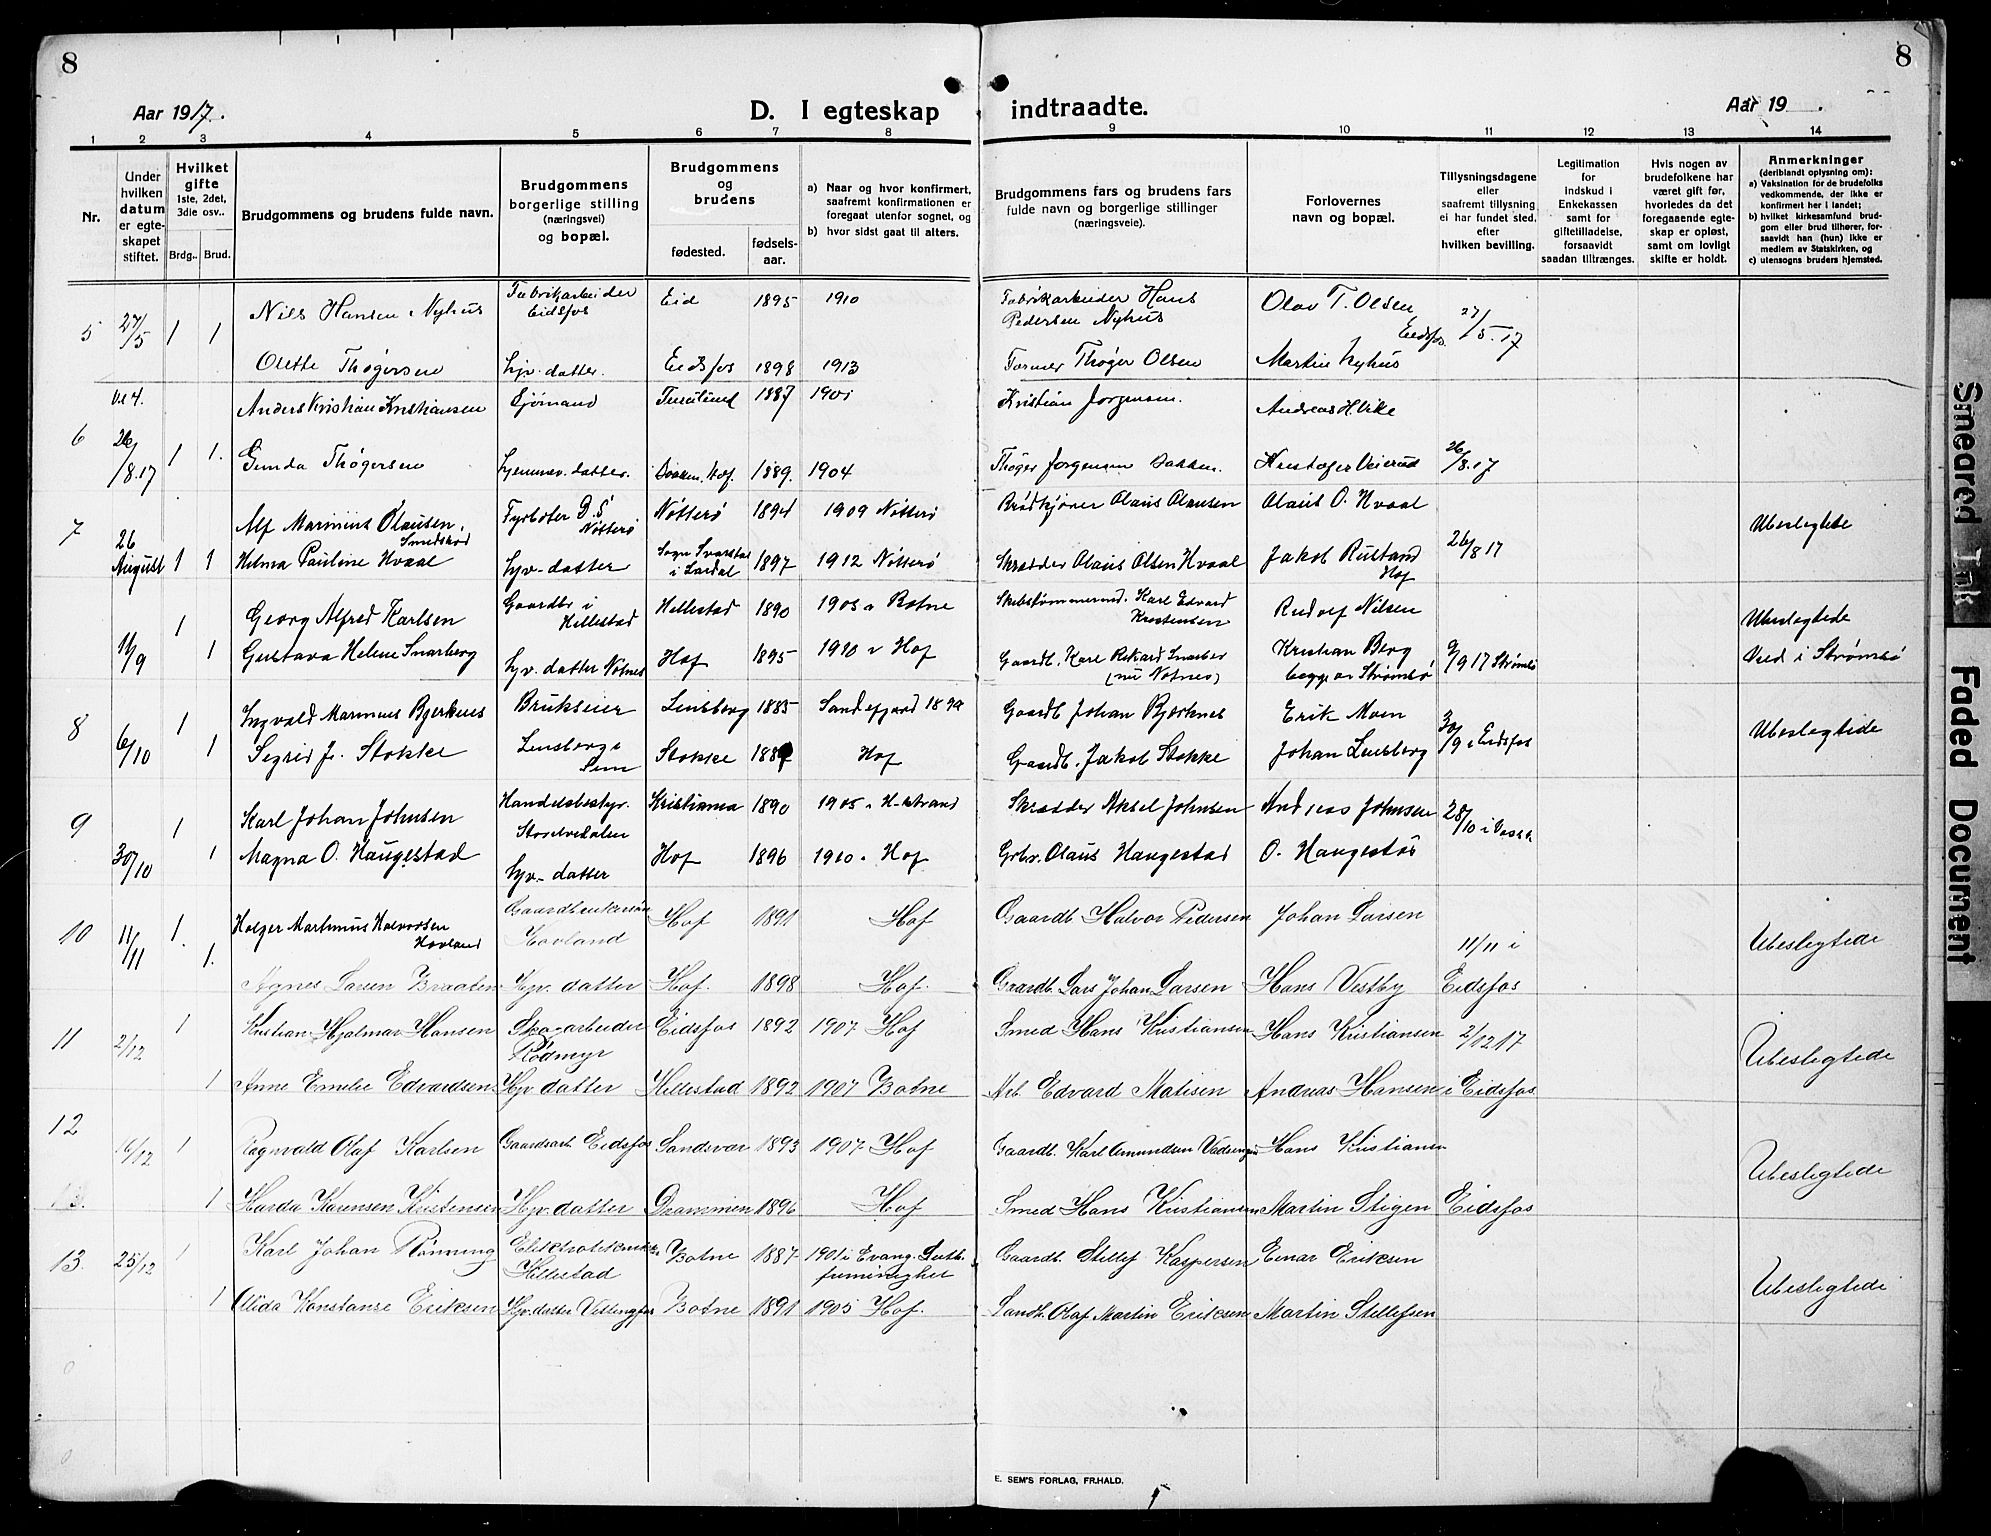 8
8
Aar 1917.
D. I egteskap indtraadte.
Aar 19    .
1 2 3 4 5 6 7 8 9 10 11 12 13 14
Nr.
Under hvilken datum er egteskapet stiftet.
Hvilket gifte 1ste, 2det, 3die osv..
Brdg.. Brud.
Brudgommens og brudens fulde navn.
Brudgommens borgerlige stilling (næringsvei) og bopæl.
Brudgommens og brudens
fødested. fødselsaar.
a) Naar og hvor konfirmert, saafremt konfirmationen er foregaat utenfor sognet, og
b) hvor sidst gaat til alters.
Brudgommens fars og brudens fars fulde navn og borgerlige stillinger (næringsveie).
Forlovernes navn og bopæl.
Tillysningsdagene eller saafremt tillysning ei har fundet sted, efter hvilken bevilling.
Legitimation for indskud i Enkekassen samt for giftetilladelse, forsaavidt saadan tiltrænges.
Hvis nogen av brudefolkene har været gift før, hvorledes da det foregaaende egteskap er opløst, samt om lovligt skifte er holdt.
Anmerkninger (deriblandt oplysning om):
a) Vaksination for de brudefolks vedkommende, der ikke er konfirmert her i landet;
b) hvilket kirkesamfund brudgom eller brud tilhører, forsaavidt han (hun) ikke er medlem av Statskirken, og
c) utensogns bruders hjemsted.
5 27/5 1 1 Nils Hansen Nyhus Fabrikarbeider Eidsfos Eid 1895 1910 Fabrikarbeider Hans Pedersen Nyhus Olav T. Olsen Eidsfos 27/5.17
Olette Thøgersen Hjv. datter Eidsfos 1898 1913 Former Thøger Olsen Martin Nyhus
Anders Kristian Kristiansen Sjømand 1887 1901 Kristian Jorgensen. Andreas H. Vike
6 26/8.17 1 1. Gunda Thøgersen Hjemmev. datter. Hof. 1889. 1904 Thøger Jorgensen Kristofer Veierud 26/8.17
7 26 August 1 1 Alf Marinius Olausen Smedsrød Fyrbøter D.S Nøtterø Nøtterø 1894 1909 Nøtterø Brødkjører Olaus Olausen Olaus O. Hvaal 26/8 17 Ubeslegtede
Helma Pauline Hvaal Hjv-datter Svarstad i Lardal 1897 1912 Nøtterø Skrædder Olaus Olsen Hvaal Jakob Rustand Hof
11/9 1 Georg Alfred Karlsen Gaardbr i Hillestad Hillestad 1890 1905 i Botne Skibstømmermd. Karl Edvard Kristensen Rudolf Nilsen Ubeslegtede
1 Gustava Helene Snarberg Hjv. datter Notnes Hof 1895 1910 i Hof Gaardb. Karl Rikard Snarber (nu Notnes) Kristian Berg begge av Strømsø 9/9 17 Strømsø Viid i Strømsø
8 6/10 1 Ingvald Marinius Bjerknes Brukseier Linsberg 1885 Sandefjord 1899 Gaardb Johan Bjerknes Erik Moen 30/9 i Eidsfos Ubeslegtede
1 Sigrid J. Stokke Linsberg i Sem Stokke 1889 Hof Gaardb. Jakob Stokke Johan Linsberg
9 30/10 1 Karl Johan Johnsen Handelsbestyr. Kristiania 1890 1905 i H-strand Skrædder Aksel Johnsen Andreas Johnsen 28/10 i
1 Magna O. Haugestad Hjv-datter Hof 1896 1910 i Hof Grbr. Olaus Haugestad O. Haugestad
10 11/11 1. Holger Martinius Halvorsen Hovland Gaardbrukersøn Hovland Hof 1891 Hof Gaardb. Halvor Pedersen Johan Larsen 11/11 i Ubeslegtede
1. Agnes Larsen Braaten Hjv. datter Hof. 1898 Hof. Gaardb. Lars Johan Larsen Hans Vestby Eidsfos
11 2/12 1 Kristian Hjalmar Hansen Skogarbeider Rødmyr Eidsfos 1892 1907 Hof Smed Hans Kristiansen Hans Kristiansen 2/12 17 Ubeslegtede
1 Anne Emelie Edvardsen Hjv datter Hillestad 1892 1907 Botne Arb. Edvard Matisen Andreas Hansen i Eidsfos
12 16/12 1 Ragnvald Olaf Karlsen Gaardsarb Eidsfos Sandsvær 1893 1907 Hof Gaardb. Karl Amundsen Hans Kristiansen Ubeslegtede
13. 1 Harda Karensen Kristensen Hjv. datter Drammen 1896 Hof Smed Hans Kristiansen Martin Stigen Eidsfos
13. 25/12 1 Karl Johan Rønning Elektrotekniker Hillestad Botne 1887 1901 i Evang. Luth. frimenighet Gaardb. Stillef Kaspersen Einar Eriksen Ubeslegtede
1 Alida Konstanse Eriksen Hjv. datter Botne 1891 1905 Hof. Landh. Olaf Martin Eriksen Martin Stillefsen
E. SEM'S FORLAG, FR.HALD.
Smeared Ink
Faded Document